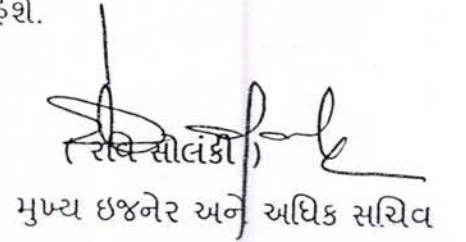 રહેશે.
( રવિ સોલંકી )
મુખ્ય ઇજનેર અને અધિક સચિવ